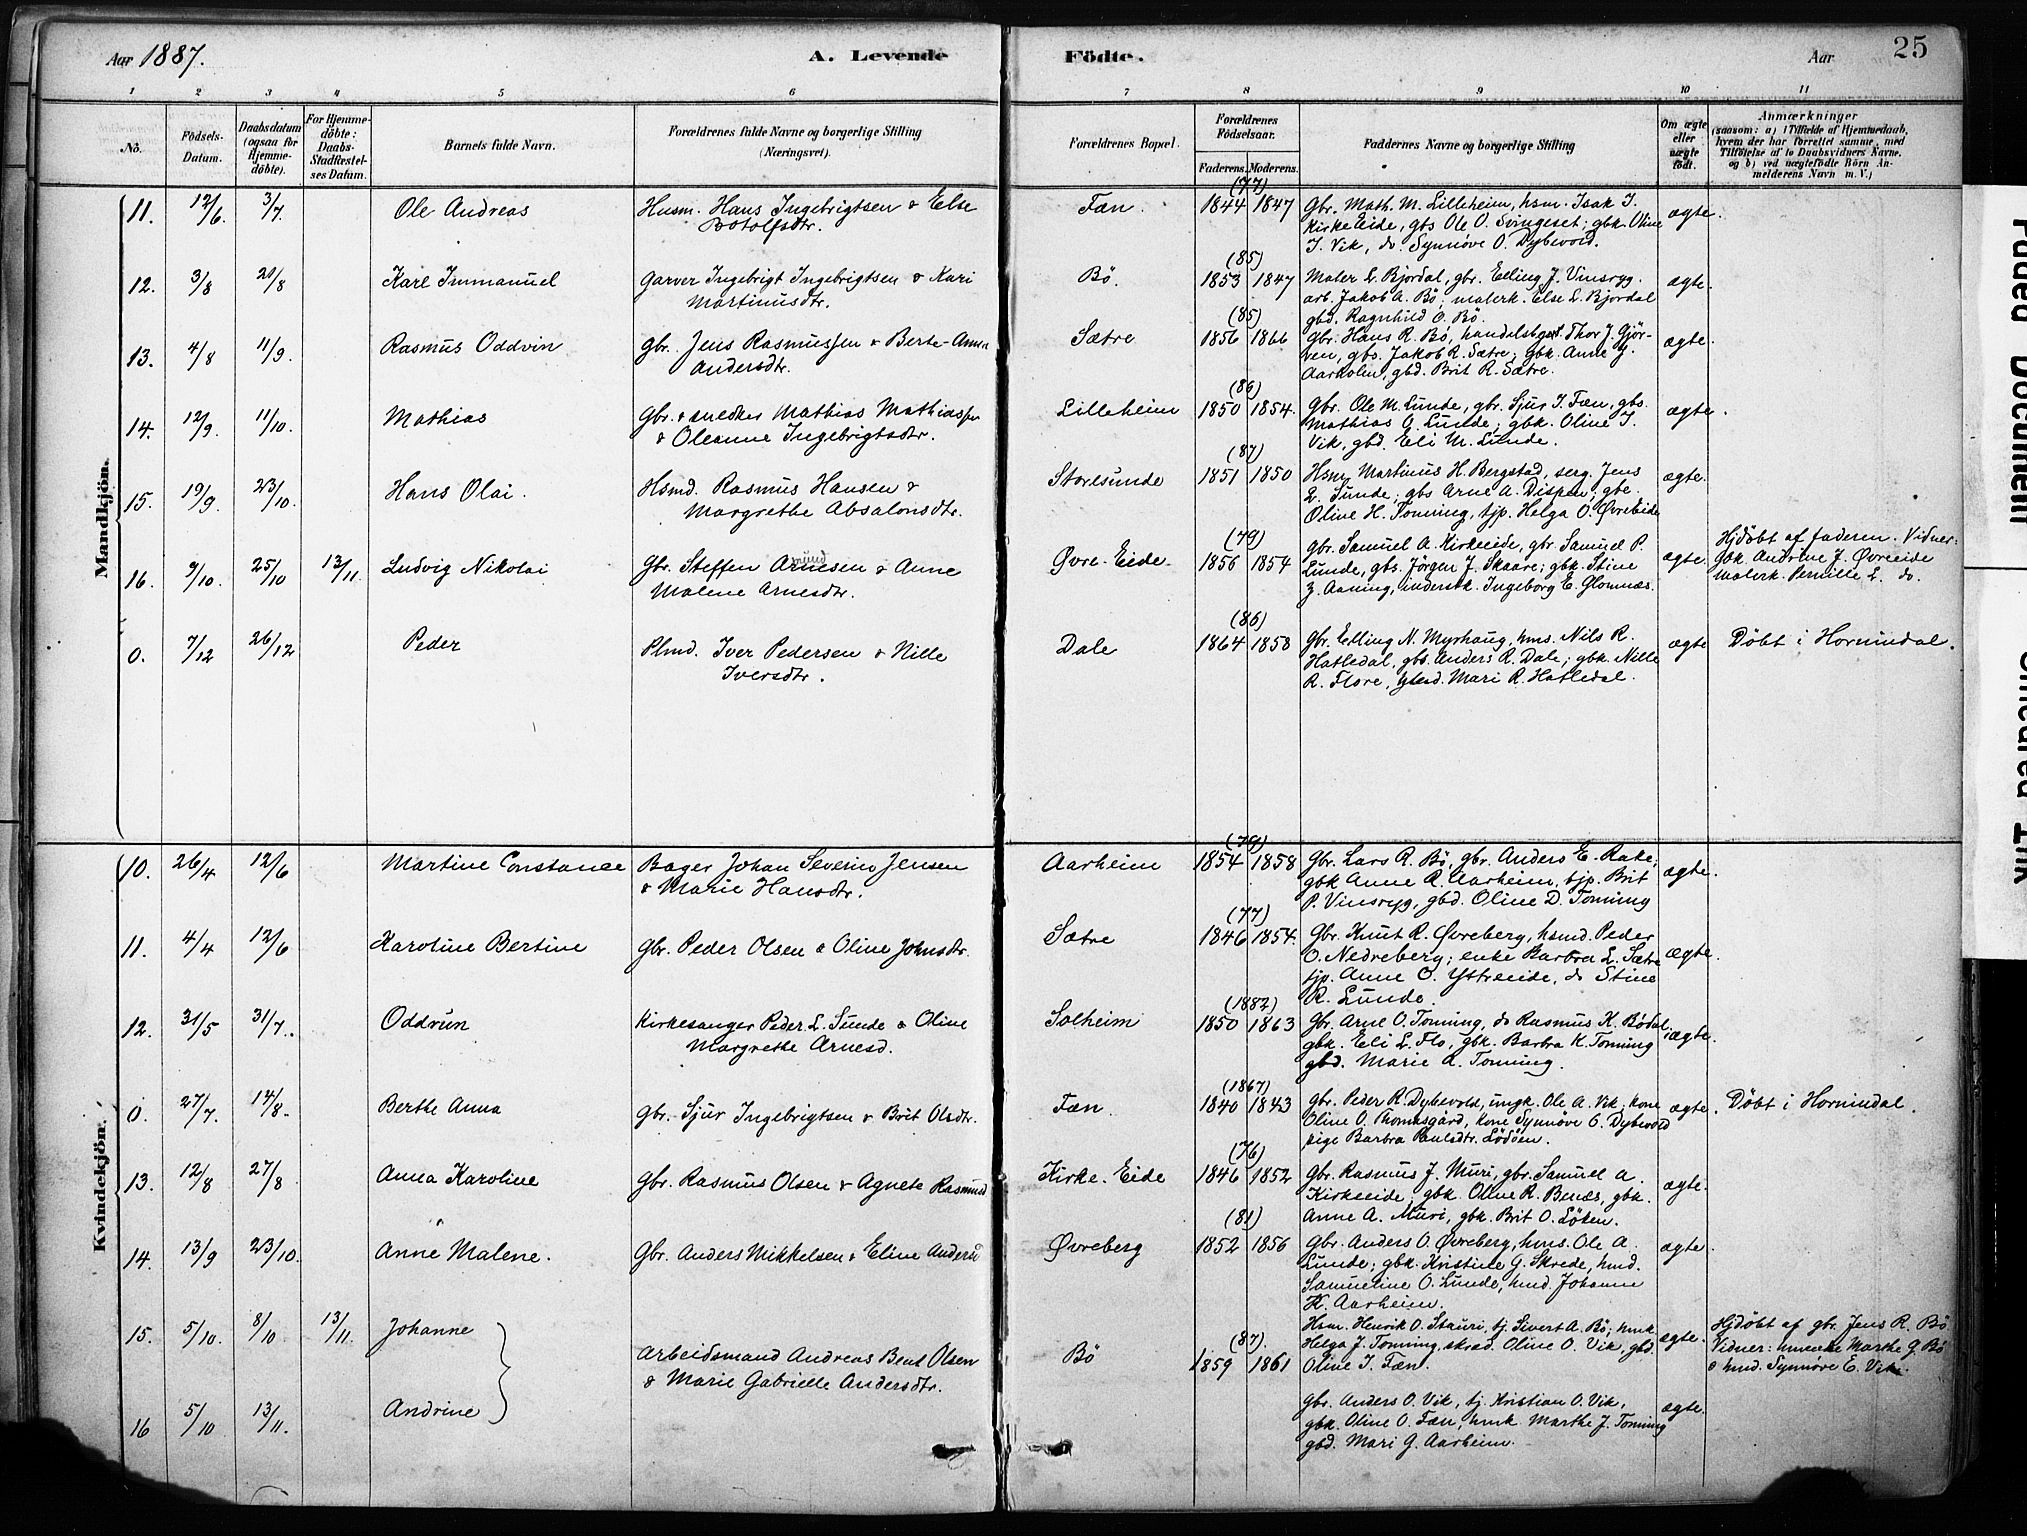 Aar 1887. A. Levende Födte. Aar 25
1 2 3 4 5 6 7 8 9 10 11
No. Födsels-Datum. Daabsdatum (ogsaa for Hjemme-döbte). For Hjemme-döbte: Daabs-Stadfæstel-ses Datum. Barnets fulde Navn. Forældrenes fulde Navne og borgerlige Stilling (Næringsvei). Forældrenes Bopæl. Forældrenes Födselsaar. Faderens. Moderens. Faddernes Navne og borgerlige Stilling Om ægte eller uægte födt. Anmærkninger (saasom: a) i Tilfælde af Hjemmedaab, hvem der har forrettet samme, med Tilföielse af to Daabsvidners Navne, og b) ved uægtefödte Börn An-melderens Navn m. V.)
Mandkjön.
11. 12/6. 3/7. Ole Andreas Husm. Hans Ingebrigtsen & Else Fæn. (77) 1844 1847 Gbr. Math. M. Lilleheim, hsm. Isak I. ægte.
Botolfsdtr. Kirke Eide, gbs Ole O. Svingeset; gbk. Oline
I. Vik, do. Synnöve O. Dybevold.
12. 3/8 21/8 Karl Immanuel Garver Ingebrigt Ingebrigtsen & Kari Bö. (85) 1853 1847 Maler L. Bjordal, gbr. Elling J. Vinsryg. ægte.
Martinusdtr. arb. Jakob A. Bö; malerk. Else L. Bjordal
gbd. Ragnhild O. Bö.
13. 4/8 11/9. Rasmus Oddvin gbr. Jens Rasmussen & Berte-Anna Sætre (85) 1856 1866 gbr. Hans R. Bö, handelsbest. Thor J. Gjör- ægte.
Andersdtr. ven, gbs. Jakob R. Sætre; gbk. Anne J.
Aarholen, gbd. Brit R. Sætre.
14. 12/9. 11/10. Mathias Gbr. & snedker Mathias Mathiassen Lilleheim (86) 1850 1854. Gbr. Ole M. Lunde, gbr. Sjur I. Fæn, gbs. ægte.
& Oleanne Ingebrigtsdtr. Mathias O. Lunde; gbk. Oline I.
Vik, gbd. Eli M. Lunde.
15. 19/9. 23/10. Hans Olai. Hsmd. Rasmus Hansen & Storesunde (87) 1851 1850 Hsm. Martinus H. Bergstad, serg. Jens ægte.
Margrethe Absalonsdtr. L. Sunde; gbs Arne A. Dispen; gbe.
Oline H. Tonning, tjp. Helga O. Øvreeide
16. 9/10. 25/10 13/11. Ludvig Nikolai Gbr. Steffen Arnesen & Anne Øvre-Eide. (79) 1856 1854 gbr. Samuel A. Kirkeeide, gbr. Samuel P. ægte. Hjdöbt af faderen. Vidner:
Malene Arnesdtr. Lunde, gbs. Jörgen J. Skaare; gbk. Stine Gbk. Andrine J. Øvreeide
Z. Aaning, inderstk. Ingeborg E. Glomnæs. Malerk. Pernille L. do.
0. 7/12 26/12 Peder Plmd. Iver Pedersen & Nille Dale (86) 1864 1858 Gbr. Elling N. Myrhaug, hms. Nils R. ægte Döbt i Hornindal.
Iversdtr. Hatledal, gbs. Anders R. Dale; gbk. Nille
R. Flore, Mari R. Hatledal.
Kvindekjön.
10. 26/4 12/6 Martine Constance Bager Johan Severin Jensen Aarheim (79) 1854 1858 Gbr. Lars R. Bö, gbr. Anders E. Rake; ægte.
& Marie Hansdtr. gbk Anne R. Aarheim, tjp. Brit
P. Vinsryg, gbd. Oline D. Tonning
11. 4/4 12/6 Karoline Bertine Gbr. Peder Olsen & Oline Johnsdtr. Sætre (77) 1846 1854. Gbr. Knut R. Øvreberg, hsmd. Peder ægte.
O. Nedreberg; enke Barbra L. Sætre
tjp. Anne O. Ytreeide, do Stine
R. Lunde.
12. 31/5 31/7. Oddrun Kirkesanger Peder L. Sunde & Oline Solheim (1882) 1850 1863 Gbr. Arne O. Tonning, do Rasmus K. Bödal, ægte.
Margrethe Arnesd. gbk. Eli L. Flo, gbk. Barbra K. Tonning
gbd. Marie A. Tonning.
0. 27/7. 14/8. Berthe Anna gbr. Sjur Ingebrigtsen & Brit Olsdtr. Fæn. (1867) 1840 1843 gbr. Peder R. Dybevold, ungk. Ole A. Vik; kone ægte. Döbt i Hornindal.
Oline O. Thomasgård, kone Synnöve O. Dybevold
pige Barbra Paulsdtr. Lödöen.
13. 12/8 27/8 Anna Karoline Gbr. Rasmus Olsen & Agnete Rasmusd Kirke-Eide (76) 1846 1852 Gbr. Rasmus J. Muri, gbr. Samuel A. ægte.
Kirkeeide; gbk. Oline R. Benæs, gbk.
Anne A. Muri, gbk. Brit O. Löken.
14. 13/9 23/10. Anne Malene. Gbr. Anders Mikkelsen & Eline Andersd Øvreberg (81) 1852 1856 Gbr. Anders O. Øvreberg, hms. Ole A. ægte.
Lunde; gbk. Kristine G. Skrede, hmd.
Samueline O. Lunde, hmd. Johanne
K. Aarheim.
15. 5/10. 8/10 13/11. Johanne Hsm. Henrik O. Stauri, tj. Sivert A. Bö; hmk ægte. Hjdöbt af gbr. Jens R. Bö
Arbeidsmand Andreas Bent Olsen Bö (87) 1859 1861 Helga J. Tonning, skræd. Oline O. Vik, gbd. Vidner: hmenke Marthe G. Bö
& Marie Gabrielle Andersdtr. Oline I. Fæn. & hmd. Synnöve E. Vik.
16 5/10 13/11. Andrine Gbr. Anders O. Vik, tj. Kristian O. Vik, ægte.
gbk. Oline O. Fæn, hmk. Marthe J. Tonning
gbd. Mari G. Aarheim.
Faded Document
Smeared Ink